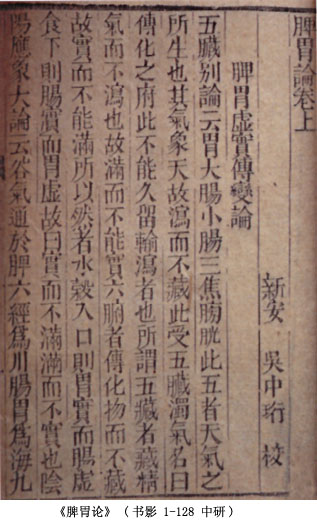 脾胃論卷上
新安 吳中珩 校
脾胃虛實傳變論
五臟別論云胃大腸小腸三焦膀胱此五者天氣之
所生也其氣象天故瀉而不藏此受五臟濁氣名曰
傳化之府此不能久留輸瀉者也所謂五藏者藏精
氣而不瀉也故滿而不能實六腑者傳化物而不藏
故實而不能滿所以然者水穀入口則胃實而腸虛
食下則腸實而胃虛故曰實而不滿滿而不實也陰
陽應象大論云谷氣通於脾六經爲川腸胃爲海九
《脾胃论》（书影 1-128 中研）